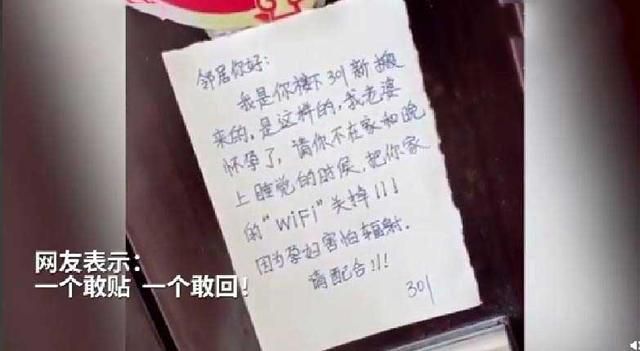 邻居你好：
我是你楼下301新搬
来的，是这样的，我老婆
怀孕了，请你不在家和晚
上睡觉的时候，把你家
的“WiFi”关掉！！！
因为孕妇害怕辐射．
请配合！！！
301
网友表示：
一个敢贴 一个敢回！